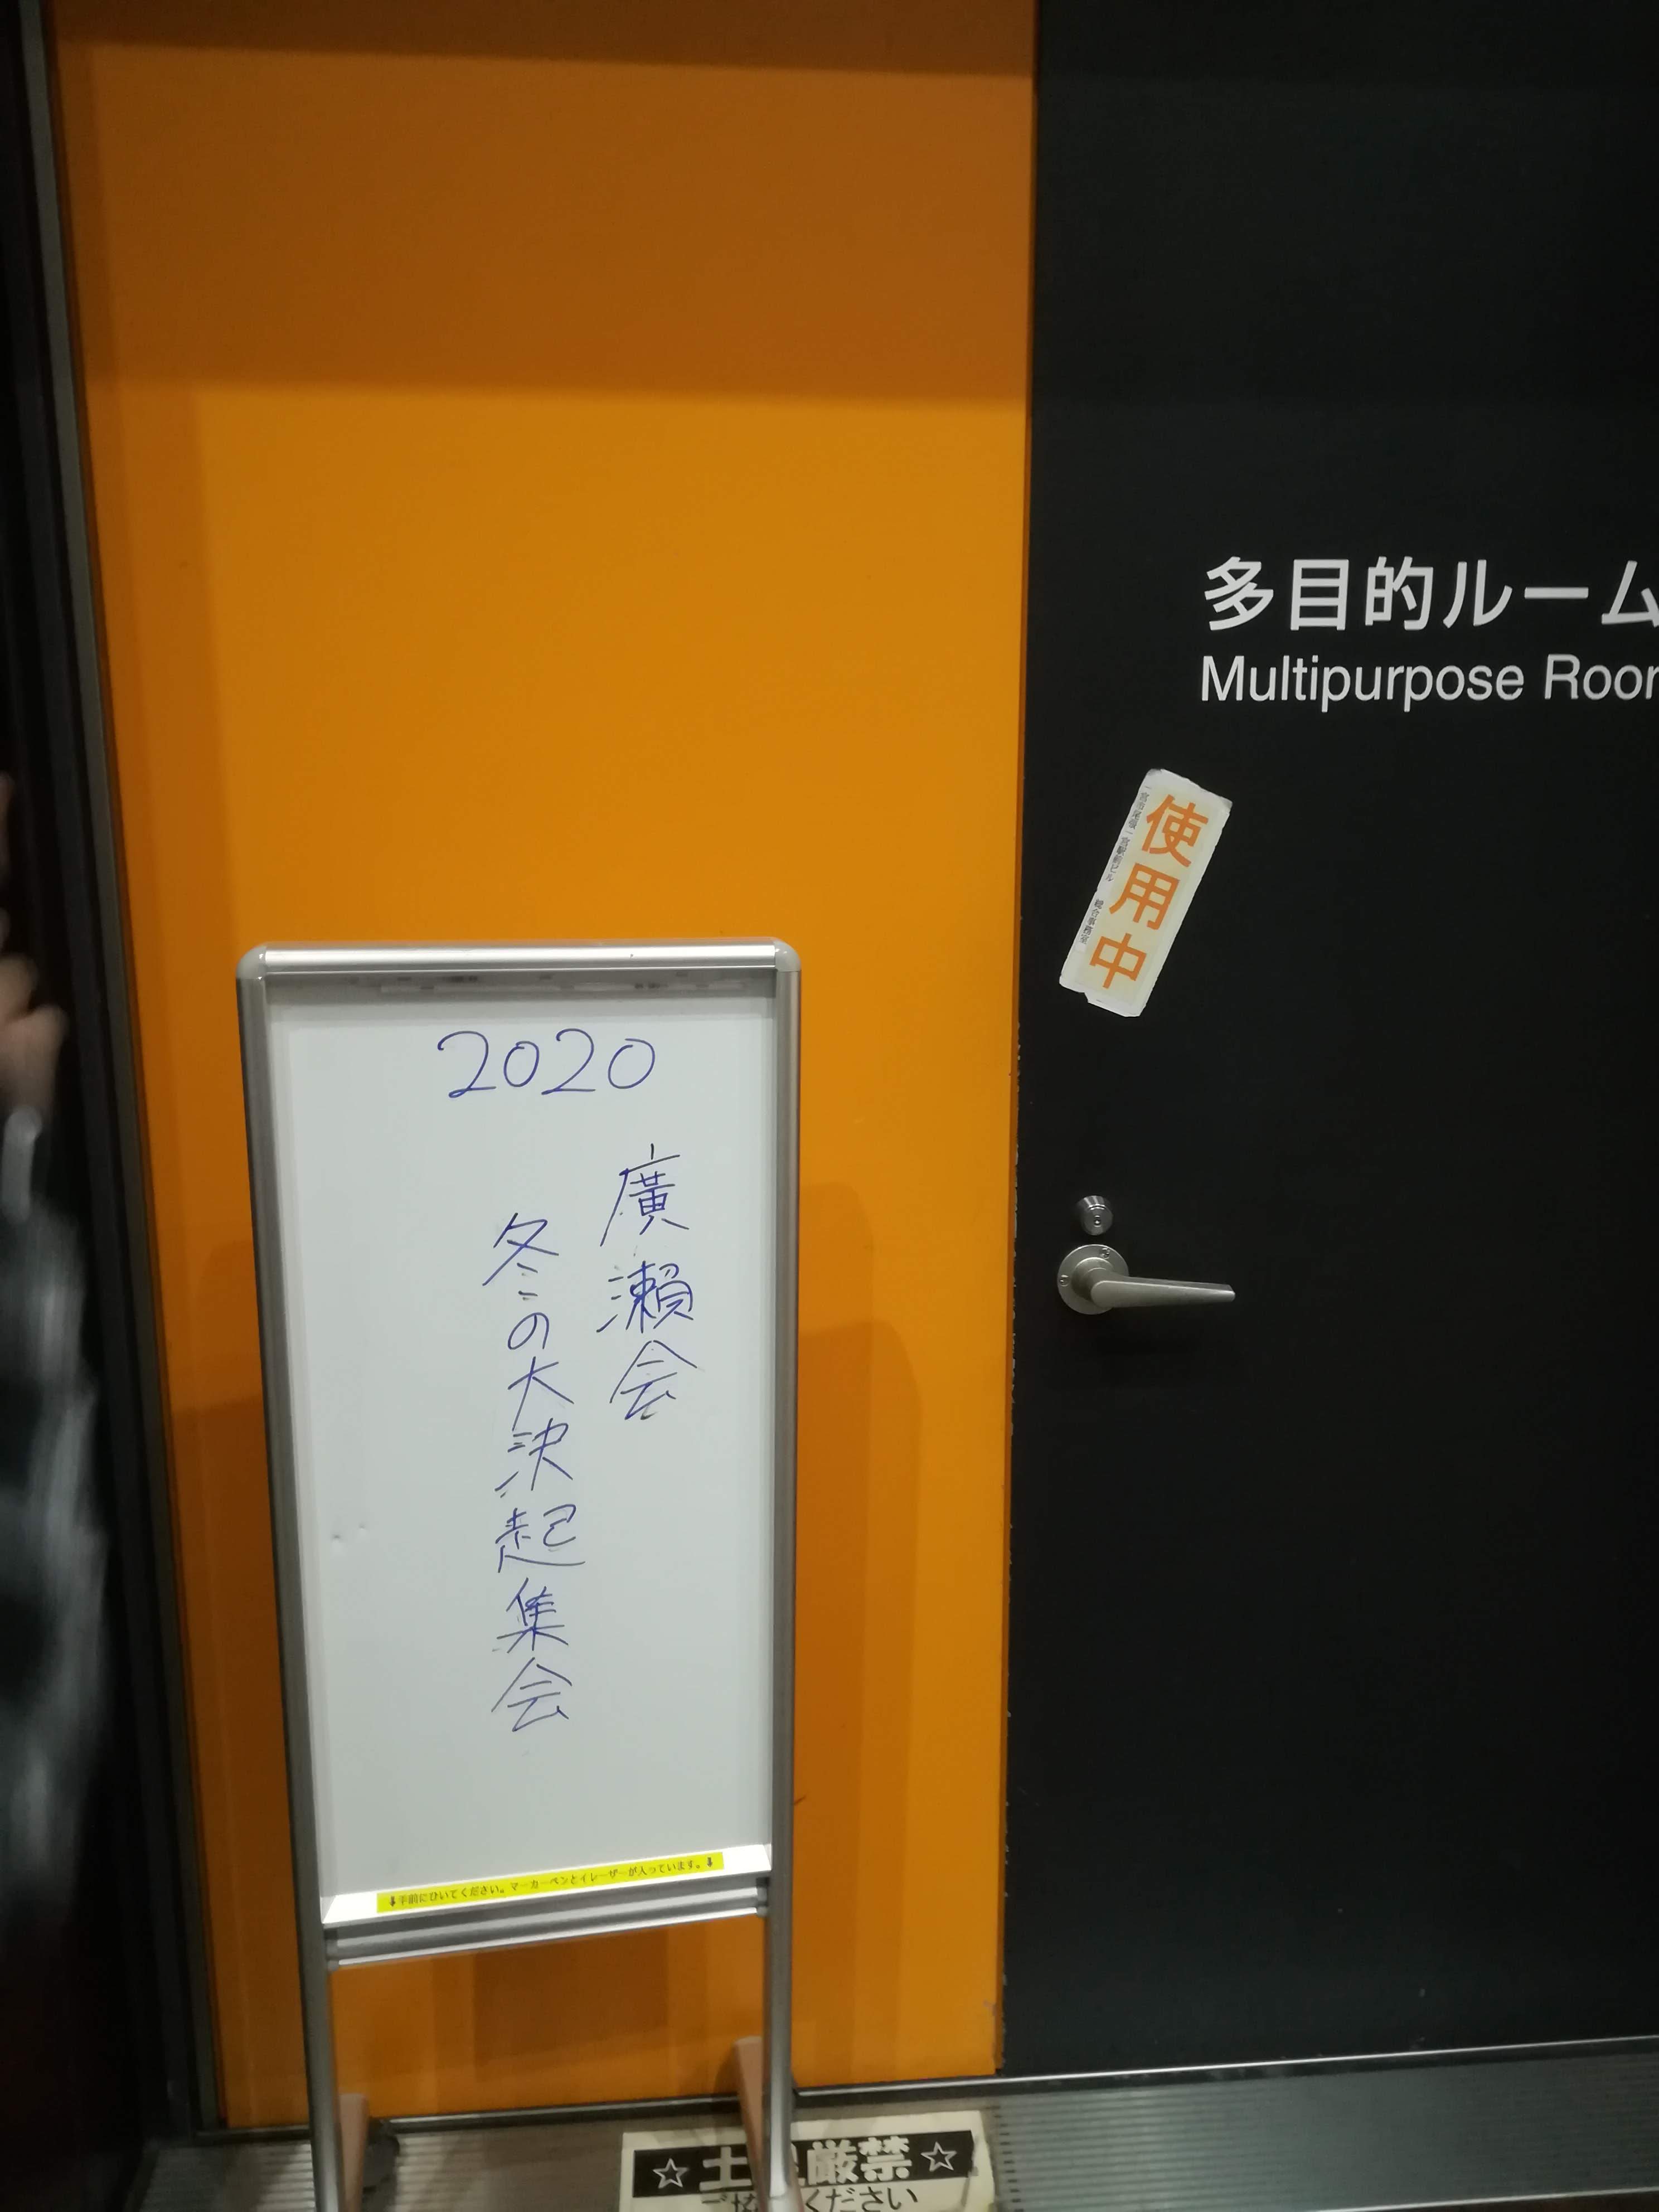 多目的ルーム
Multipurpose Roo
使用中
総合事務室
2020
廣瀬会
冬の大決起集会
⬇手前にひいてください。マーカーペンとイレーザーが入っています。⬇
☆土足厳禁☆
ください